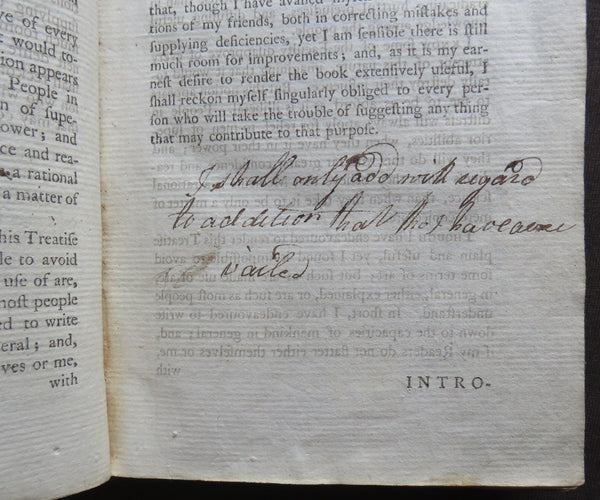 ve of every
e would to-
tion appears
People in
n of supe-
ower; and
ce and rea-
a rational
a matter of
his Treatise
le to avoid
use of are,
most people
ed to write
eral; and,
ves or me,
with
that, though I have availed
tions of my friends, both in correcting mistakes and
supplying deficiencies, yet I am sensible there is still
much room for improvements; and, as it is my ear-
nest desire to render the book extensively useful, I
shall reckon myself singularly obliged to every per-
son who will take the trouble of suggesting any thing
that may contribute to that purpose.
I shall only add with regard
to addition that tho I have
vailed
INTRO-